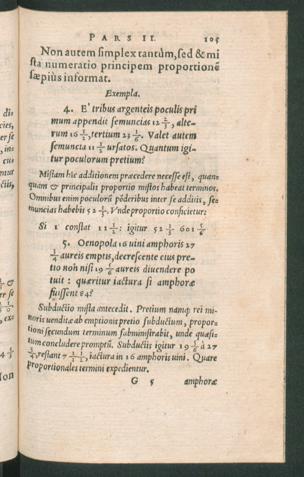 PARS II. 105
Non autem simplex tantùm, sed & mi
sta numeratio principem proportionẽ
sæpiùs informat.
Exempla.
4. E' tribus argenteis poculis pri
mum appendit semuncias 12
rum 16 tertium 23 Valet autem
semuncia 11 ursatos. Quantum igi-
tur poculorum pretium?
Mistam hîc additionem præcedere necesse est, quan-
quam & principalis proportio mistos habeat terminos.
Omnibus enim poculorũ põderibus inter se additis, se-
muncias habebis 52 Vnde proportio conficietur:
Si 1 constat 11 igitur 52 601
5. Oenopola 16 uini amphoris 27
aureis emptis, decrescente eius pre-
tio non nisi 19 aureis diuendere po
tuit: quæritur iactura si amphoræ
fuissent 84?
Subductio mista antecedit. Pretium namq; rei mi-
noris uenditæ ab emptionis pretio subductum, propor-
tioni secundum terminum subministrabit, unde quæsi-
tum concludere promptũ. Subductis igitur 19 à 27
restant 7 iactura in 16 amphoris uini. Quare
proportionales termini expedientur.
G 5 amphoræ